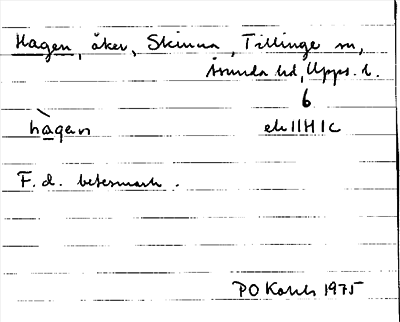 Hagen, åker, Skinna, Tillinge sn,
Åsunda hd, Upps. l.
6
hàgan ek 11H1c
F. d. betesmark.
PO 1975